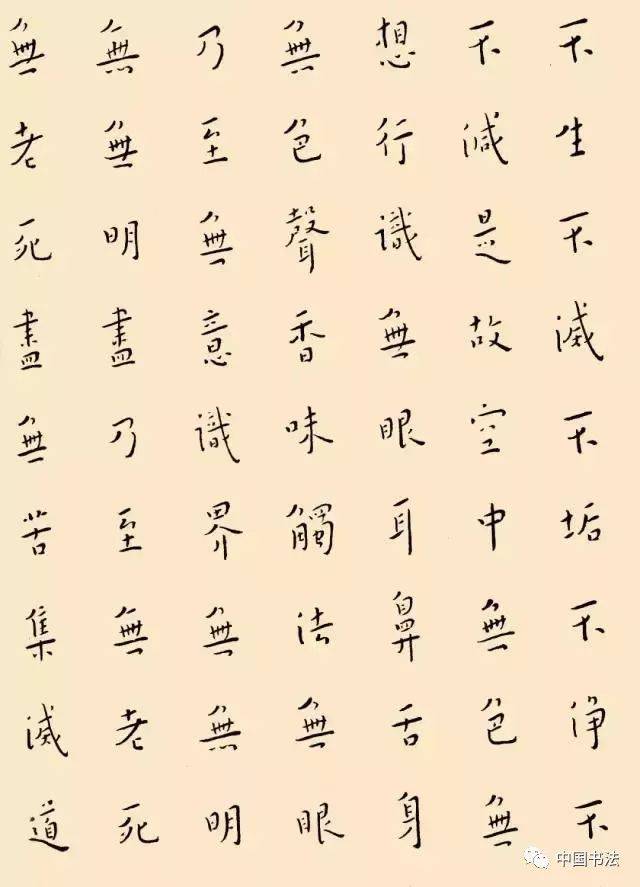 不生不滅不垢不净不
不減是故空中無色無
想行識無眼耳鼻舌身
無色聲香味觸法無眼
乃至無意識界無無明
無無明盡乃至無老死
無老死盡無苦集滅道
中国书法